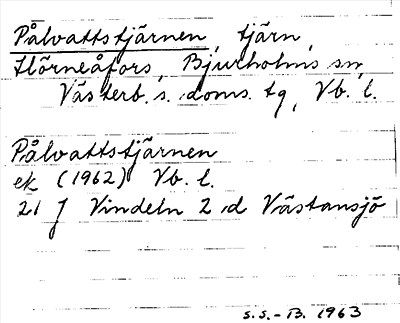 Pålvattstjärnen, tjärn,
Hörneåfors, Bjurholms sn,
Västerb. s. doms. tg, Vb. l.
Pålvattstjärnen
ek (1962) Vb. l.
21 J Vindeln 2 d Västansjö
S.S.-B. 1963